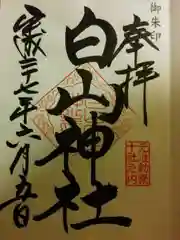 御朱印
奉拝
白山神社
平成二十七年六月五日